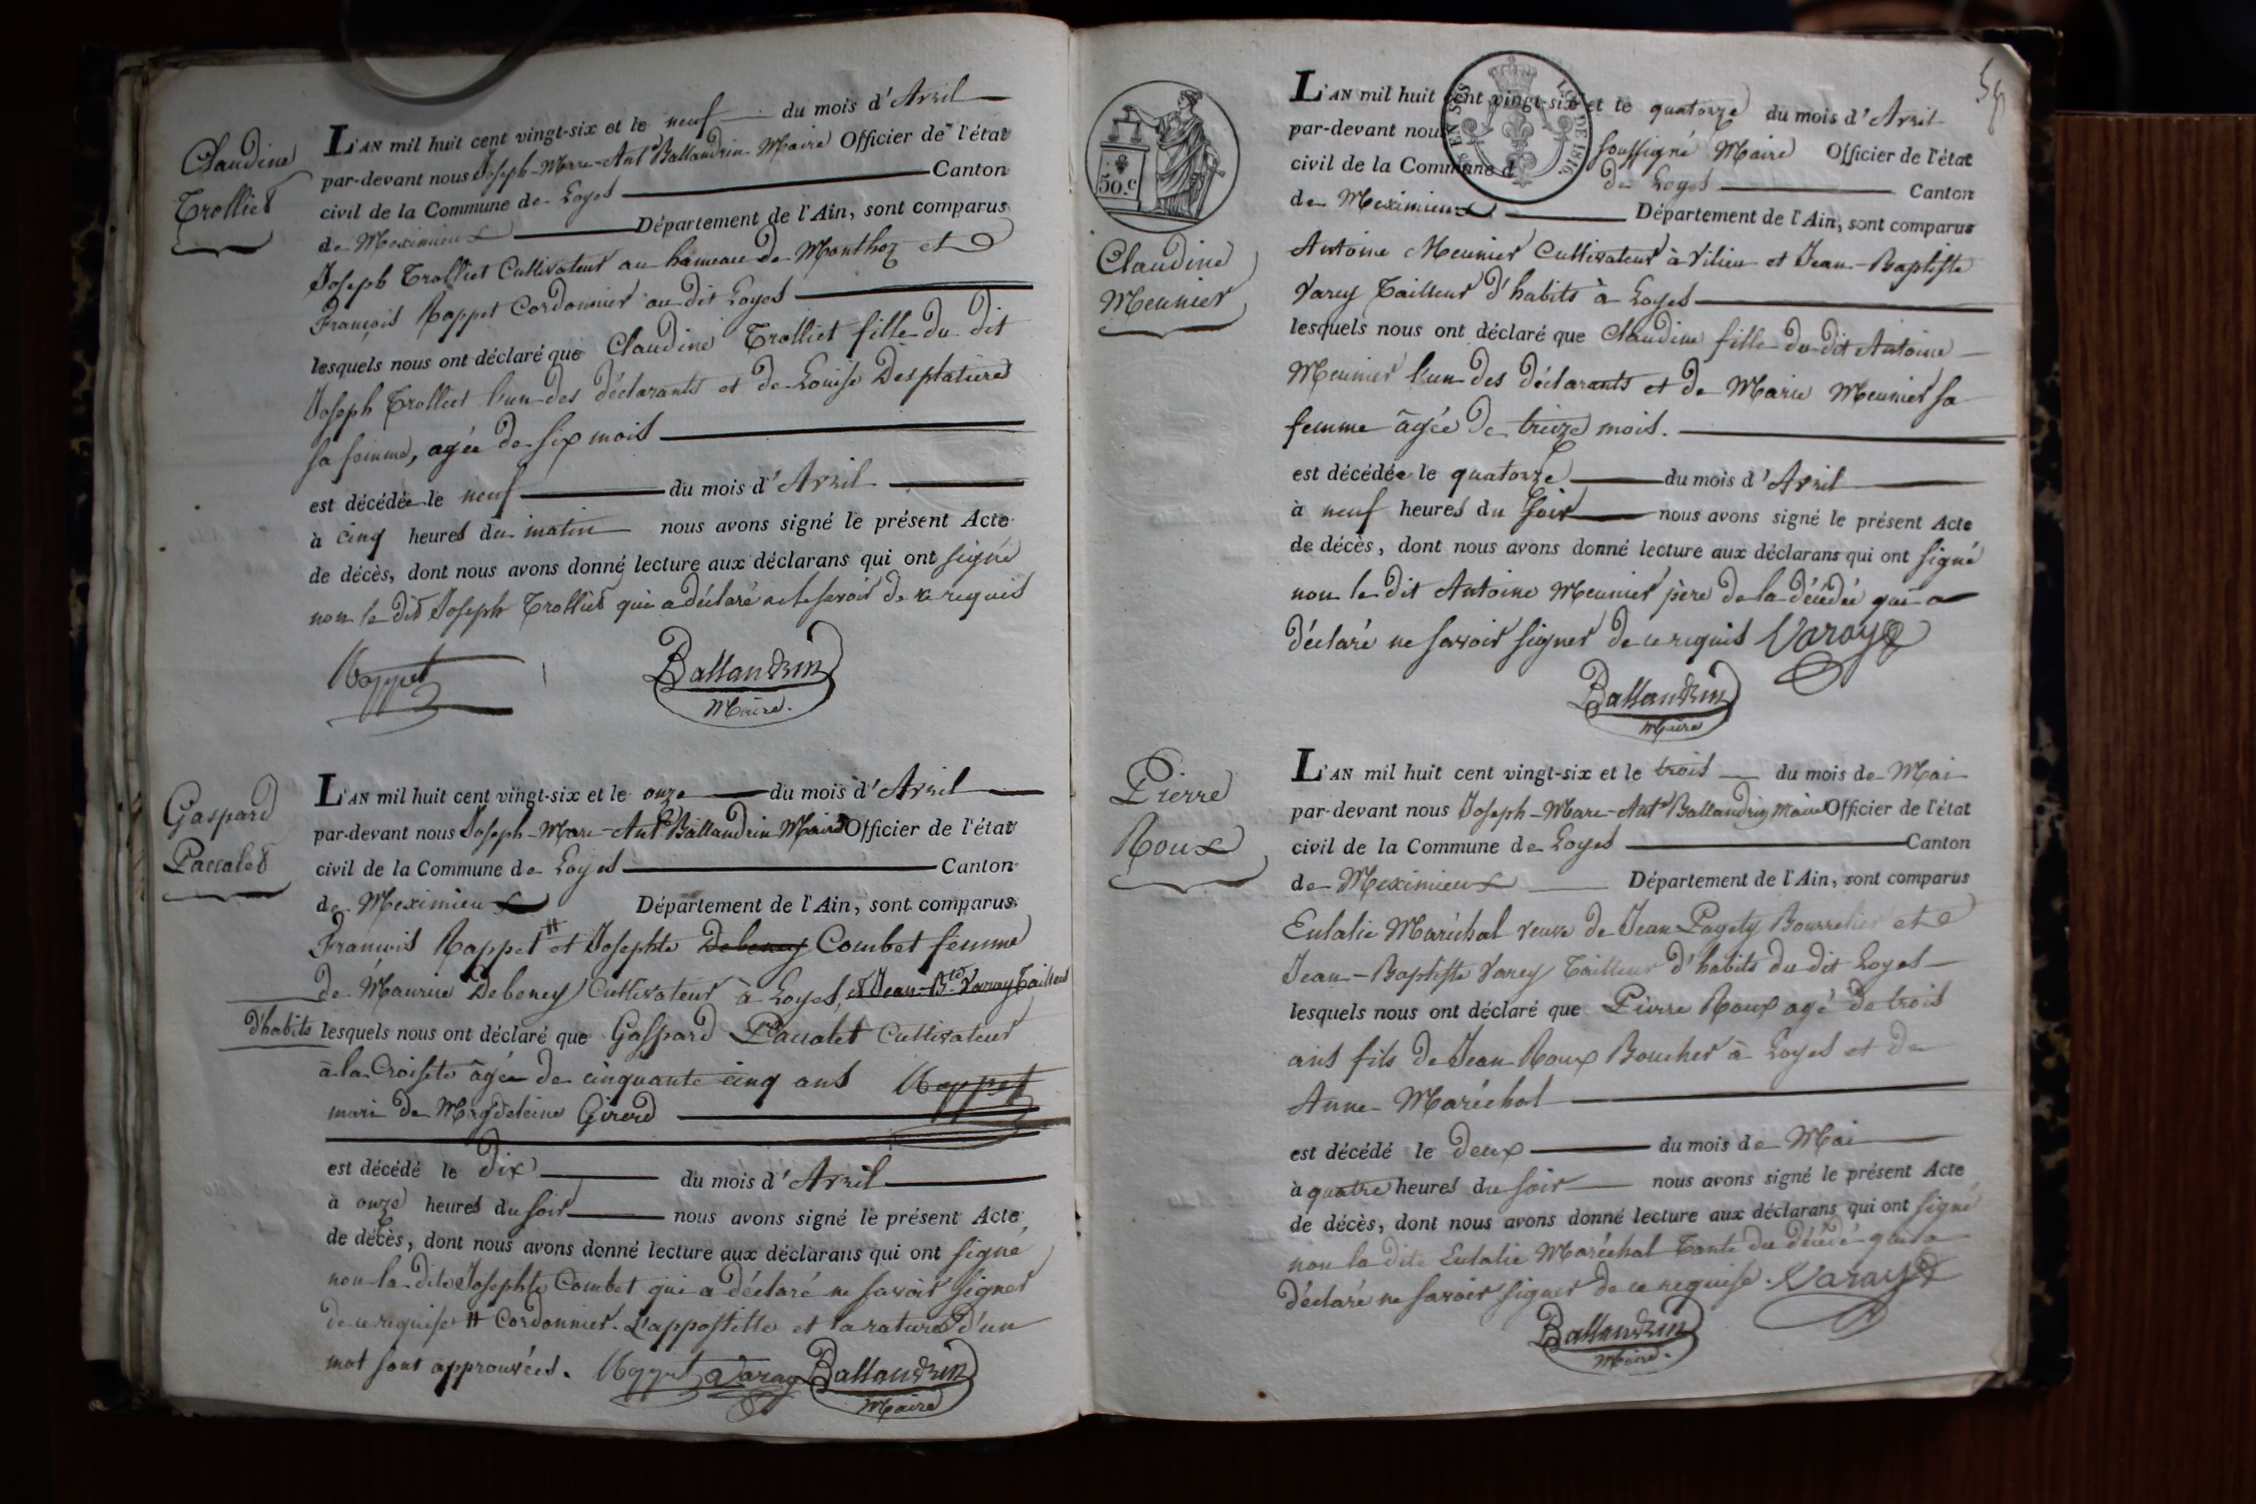 Claudine
Trolliet
L'AN mil huit cent vingt-six et le neuf du mois d'Avril
par-devant nous Joseph-Marc-Ant.e Ballandrin Maire Officier de l'état
civil de la Commune de Loyes Canton
de Meximieux Département de l'Ain, sont comparus
Joseph Trolliet Cultivateur au hameau de Monthoz et
François Rappet Cordonnier au dit Loyes
lesquels nous ont déclaré que Claudine Trolliet fille du dit
Joseph Trolliet l'un des déclarants et de Louise Desplatière
sa femme, agée de six mois
est décédée le neuf du mois d'Avril
à cinq heures du matin nous avons signé le présent Acte
de décès, dont nous avons donné lecture aux déclarans qui ont signé
non le dit Joseph Trolliet qui a déclaré ne le savoir de ce requis
Rappet Ballandrin
Maire.
Gaspard
Paccalet
L'AN mil huit cent vingt-six et le onze du mois d'Avril
par-devant nous Joseph-Marc-Ant.e Ballandrin Maire Officier de l'état
civil de la Commune de Loyes Canton
de Meximieux Département de l'Ain, sont comparus
François Rappet # et Josephte Debeney Combet femme
de Maurice Debeney Cultivateur à Loyes, et Jean-B.te Varay Tailleur
d'habits lesquels nous ont déclaré que Gaspard Paccalet Cultivateur
à la Croisete âgée de cinquante cinq ans Rappet
mari de Magdeleine Girerd
est décédé le dix du mois d'Avril
à onze heures du soir nous avons signé le présent Acte
de décès, dont nous avons donné lecture aux déclarans qui ont signé
non la dite Josephte Combet qui a déclaré ne savoir signer
de ce requise # Cordonnier. L'appostille et la rature d'un
mot sont approuvées. Rappet Varay Ballandrin
Maire
54
50.c
LOI DE 1816
Claudine
Meunier
L'AN mil huit cent vingt-six et le quatorze du mois d'Avril
par-devant nous soussigné Maire Officier de l'état
civil de la Commune de Loyes Canton
de Meximieux Département de l'Ain, sont comparus
Antoine Meunier Cultivateur à Vilieu et Jean-Baptiste
Varey Tailleur d'habits à Loyes
lesquels nous ont déclaré que Claudine fille du dit Antoine
Meunier l'un des déclarants et de Marie Meunier sa
femme âgée de treize mois.
est décédée le quatorze du mois d'Avril
à neuf heures du soir nous avons signé le présent Acte
de décès, dont nous avons donné lecture aux déclarans qui ont signé
non le dit Antoine Meunier père de la décédée qui a
déclaré ne savoir signer de ce requis Varay
Ballandrin
Maire
Pierre
Roux
L'AN mil huit cent vingt-six et le trois du mois de Mai
par-devant nous Joseph-Marc-Ant.e Ballandrin Maire Officier de l'état
civil de la Commune de Loyes Canton
de Meximieux Département de l'Ain, sont comparus
Eulalie Maréchal veuve de Jean Pagety Bourrelier et
Jean-Baptiste Varey Tailleur d'habits du dit Loyes
lesquels nous ont déclaré que Pierre Roux agé de trois
ans fils de Jean Roux Boucher à Loyes et de
Anne Maréchal
est décédé le deux du mois de Mai
à quatre heures du soir nous avons signé le présent Acte
de décès, dont nous avons donné lecture aux déclarans qui ont signé
non la dite Eulalie Maréchal Tante du décédé qui a
déclaré ne savoir signer de ce requise. Varay
Ballandrin
Maire.